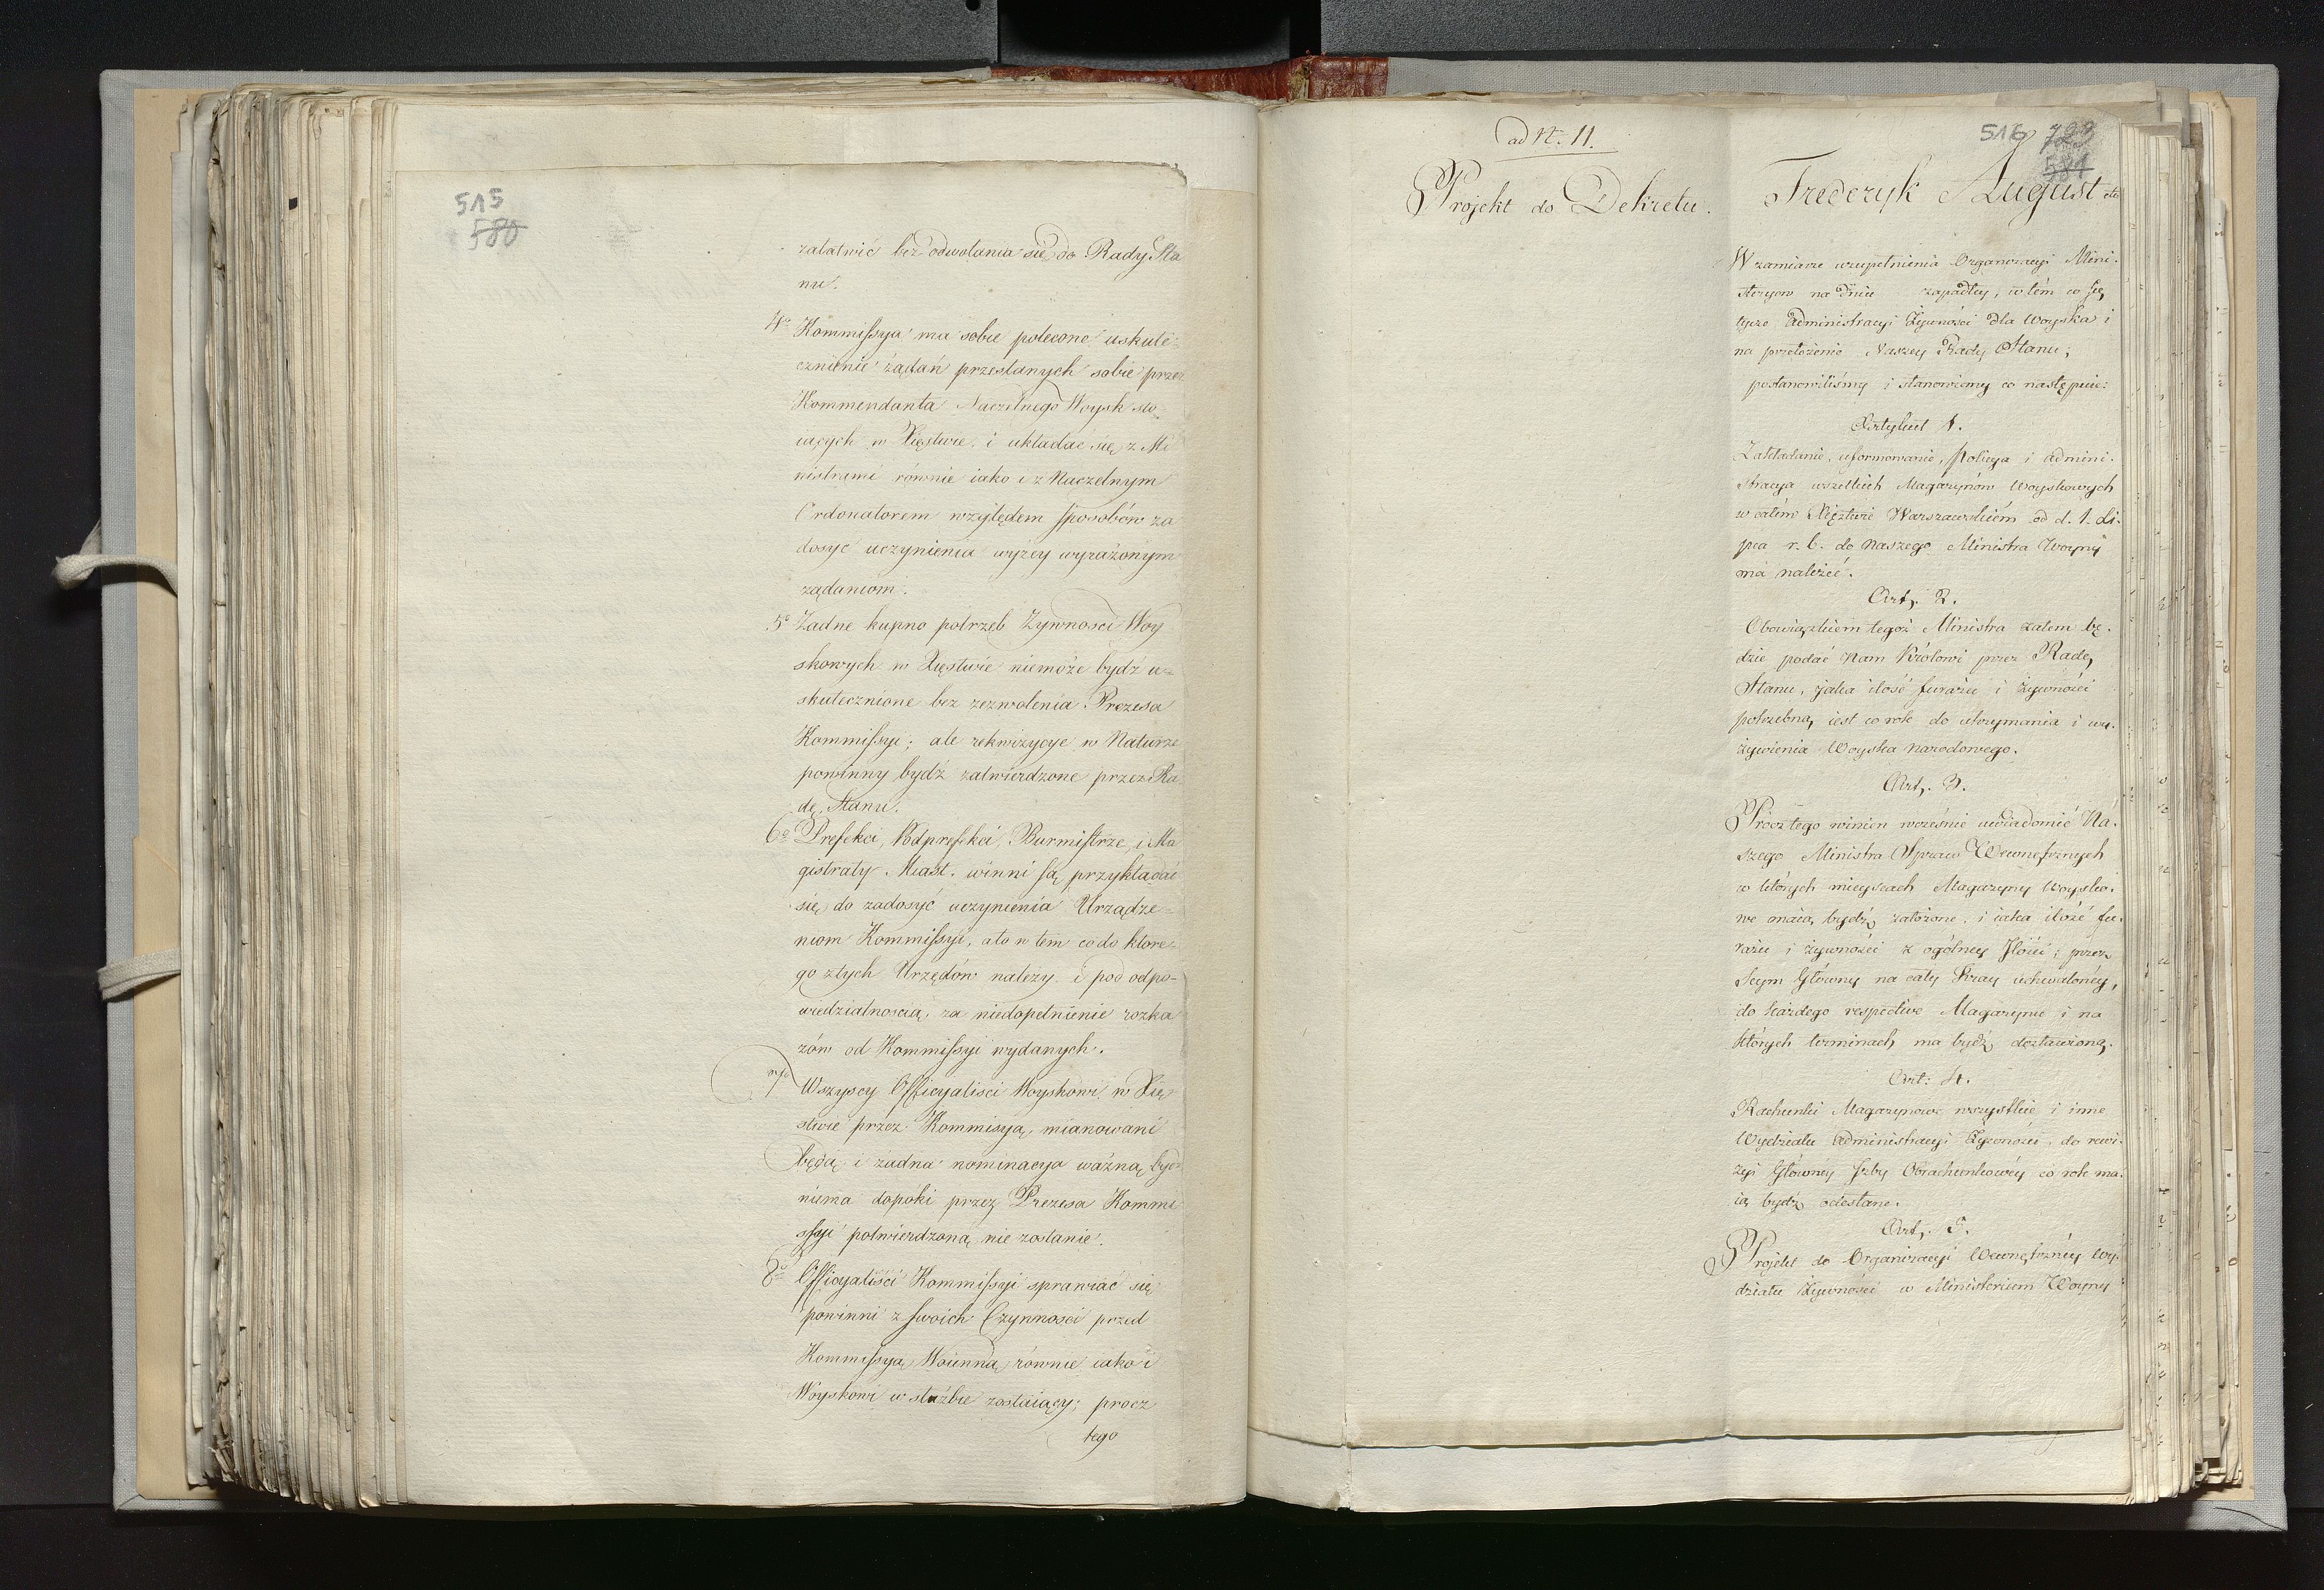 515
580
załatwić bez odwołania się do Rady Sta
nu.
4o Kommissya ma sobie polecone uskute-
cznienie żądań przesłanych sobie przez
Kommendanta Naczelnego Woysk sto-
iących w Xięstwie i układać się z Mi
nistrami równie iako i z Naczelnym
Ordonatorem względem sposobów za
dosyć uczynienia wyżey wyrażonym
żądaniom.
5o Żadne kupno potrzeb Żywności Woy
skowych w Xięstwie niemoże bydź u-
skutecznione bez zezwolenia Prezesa
Kommissyi; ale rekwizycye w Naturze
powinny bydź zatwierdzone przez Ra
dę Stanu.
6o Prefekci, Podprefekci, Burmistrze, i Ma
gistraty Miast, winni są przykładać
się do zadosyć uczynienia Urządze-
niom Kommissyi, ato w tem co do które-
go z tych Urzędów należy i pod odpo-
wiedzialnością za niedopełnienie rozka
zów od Kommissyi wydanych.
7o Wszyscy Officyaliści Woyskowi w Xię
stwie przez Kommisyą mianowani
będą i żadna nominacya ważną bydź
niema dopóki przez Prezesa Kommi
ssyi potwierdzoną nie zostanie.
8o Officyaliści Kommissyi sprawiać się
powinni z swoich Czynności przed
Kommissyą Woienną równie iako i
Woyskowi w służbie zostaiący; procz
tego
ad N. 11.
Projekt do Dekretu.
516 723
581
Frederyk August etc
W zamiarze uzupełnienia Organizacyi Mini-
steryow na dniu zapadłey, w tém co się
tycze Administracyi Żywności dla Woyska i
na przełożenie Naszey Rady Stanu;
postanowiliśmy i stanowiemy co następuie:
Artykuł 1.
Zakładanie, uformowanie, Policya i admini-
stracya wszelkich Magazynów Woyskowych
w całém Xięztwie Warszawskiém od d. 1. Li-
pca r. b. do Naszego Ministra Woyny
ma należeć.
Art. 2.
Obowiązkiem tegoż Ministra zatem bę-
dzie podać Nam Królowi przez Radę
Stanu, jaka ilość furażu i żywności
potrzebną iest co rok do utrzymania i wy-
żywienia Woyska Narodowego.
Art. 3.
Prócz tego winien wcześnie uwiadomić Na-
szego Ministra Spraw Wewnętrznych
w których mieyscach Magazyny Woysko-
we maią bydź założone, i iaka ilość fu-
rażu i żywności z ogólney Ilości, przez
Seym Główny na cały Kray uchwaloney,
do każdego respective Magazynu i na
których terminach ma bydź dostawioną.
Art: 4.
Rachunki Magazynowe wszystkie i inne
Wydziału Administracyi Żywności, do rewi-
zyi Główney Izby Obrachunkowéy co rok ma-
ią bydź odesłane.
Art. 5.
Projekt do Organizacyi Wewnętrznéy Wy-
działu Żywności w Ministerium Woyny